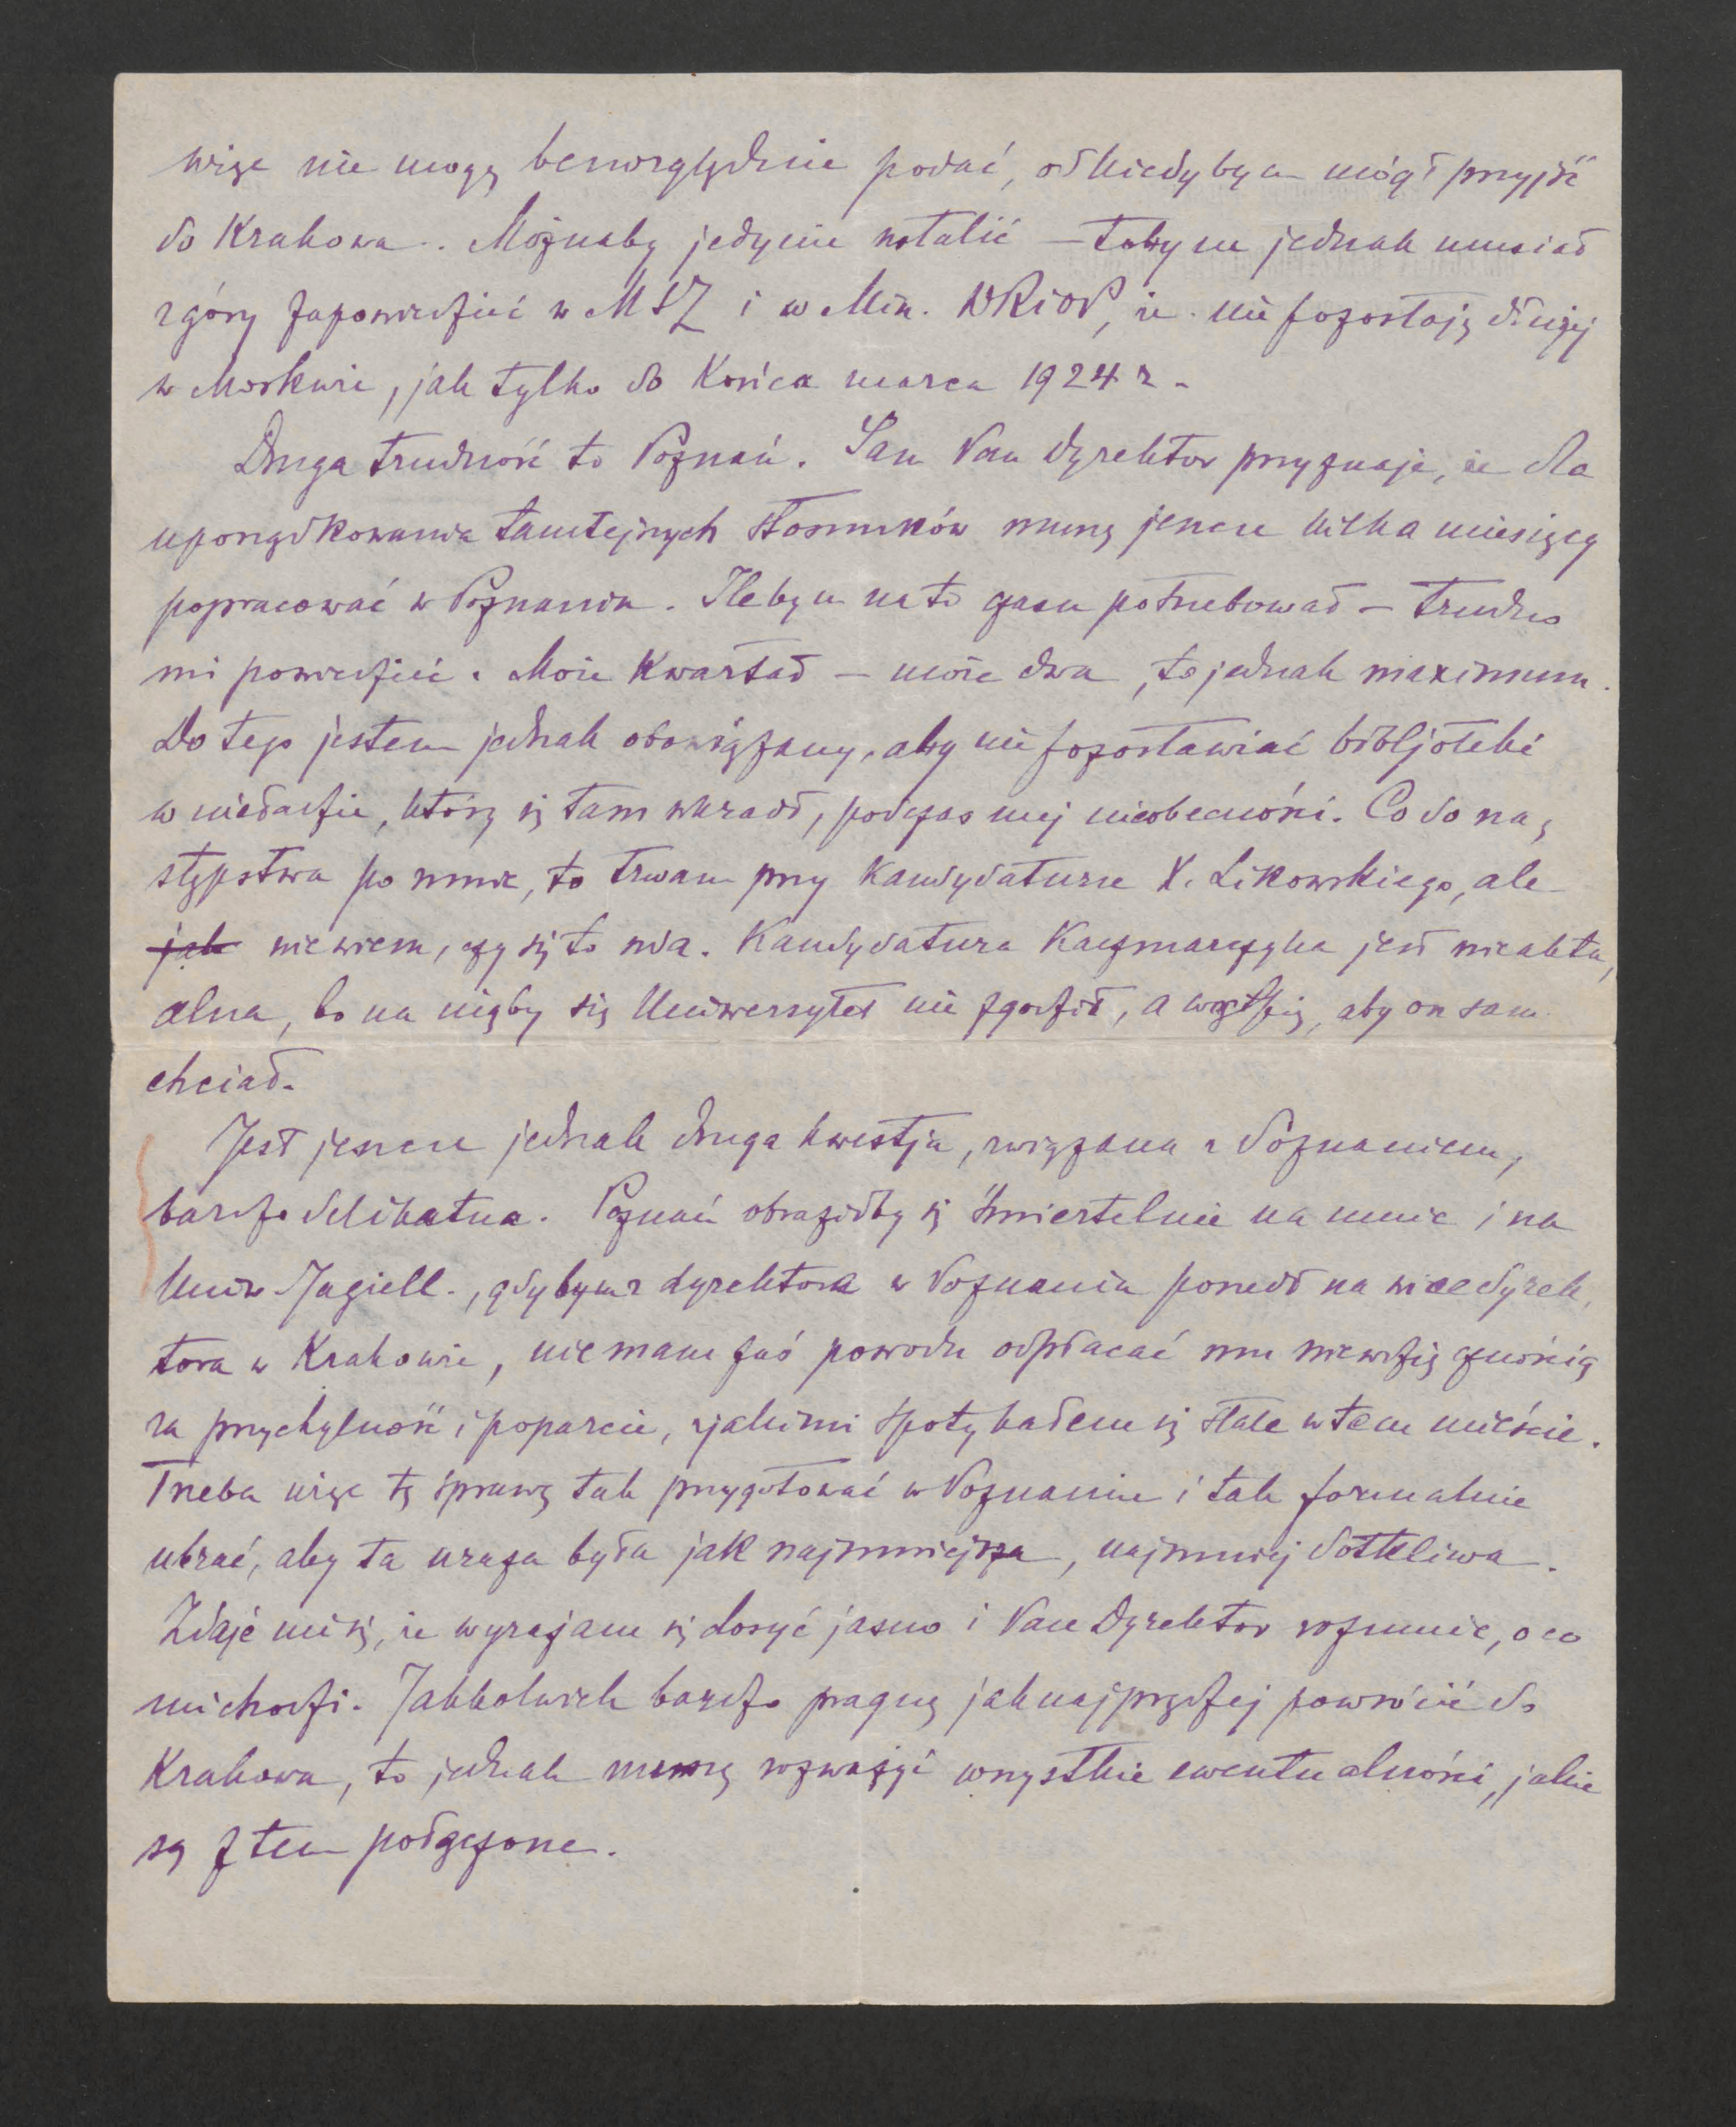 więc nie mogę bezwzględnie podać, od kiedybym mógł przyjść
do Krakowa. Możnaby jedynie ustalić — tobym jednak musiał
zgóry zapowiedzieć w MSZ i w Min. WRiOP, że nie pozostaję dłużej
w Moskwie, jak tylko do końca marca 1924 r.
Druga trudność to Poznań. Sam Pan Dyrektor przyznaje, że dla
uporządkowania tamtejszych stosunków muszę jeszcze kilka miesięcy
popracować w Poznaniu. Ilebym na to czasu potrzebował — trudno
mi powiedzieć. Może kwartał — może dwa, to jednak maximum.
Do tego jestem jednak obowiązany, aby nie pozostawiać bibljoteki
w nieładzie, który się tam wkradł, podczas mej nieobecności. Co do na,
stępstwa po mnie, to trwam przy kandydaturze X. Likowskiego, ale
jak nie wiem, czy się to uda. Kandydatura Kaczmarczyka jest nieaktu,
alna, bo na niąby się Uniwersytet nie zgodził, a wątpię, aby on sam
chciał.
Jest jeszcze jednak druga kwestja, związana z Poznaniem,
bardzo delikatna. Poznań obraziłby się śmiertelnie na mnie i na
Uniw. Jagiell., gdybym z dyrektora w Poznaniu poszedł na wicedyrek,
tora w Krakowie, nie mam zaś powodu odpłacać mu niewdzięcznością
za przychylność i poparcie, z jakimi spotykałem się stale w tem mieście.
Trzeba więc tę sprawę tak przygotować w Poznaniu i tak formalnie
ubrać, aby ta uraza była jak najmniejsza, najmniej dotkliwa.
Zdaje mi się, że wyrażam się dosyć jasno i Pan Dyrektor rozumie, o co
mi chodzi. Jakkolwiek bardzo pragnę jaknajprędzej powrócić do
Krakowa, to jednak muszę rozważyć wszystkie ewentualności, jakie
są z tem połączone.